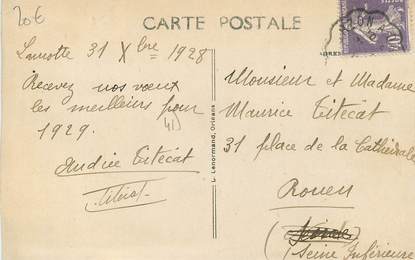 20€
CARTE POSTALE
Lamotte 31 Xbre 1928
Recevez nos vœux
les meilleurs pour
1929.
41)
Andrée Titécat
L. Lenormand, Orléans
Monsieur et Madame
Maurice Titécat
31 place de la Cathédrale
Rouen
(Seine Inférieure